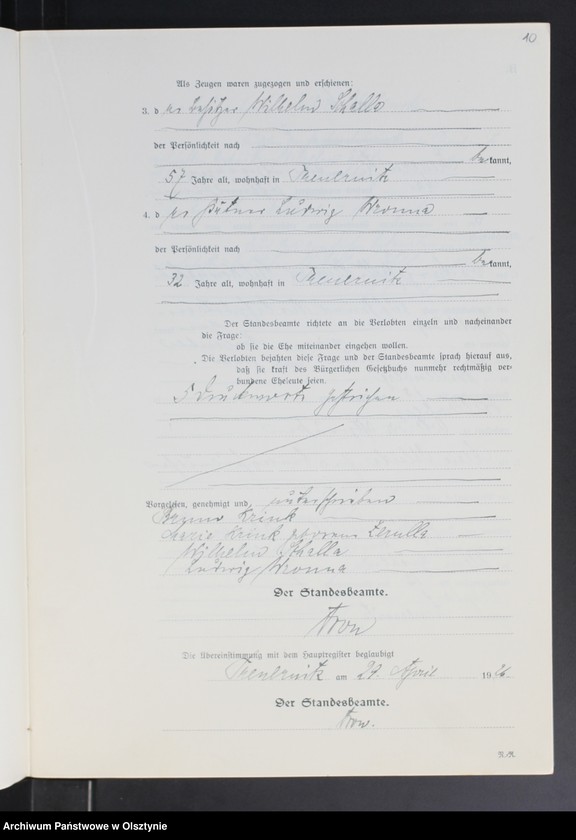 10
Als Zeugen waren zugezogen und erschienen:
3. der Besitzer Wilhelm Skalla
der Persönlichkeit nach
bekannt,
57 Jahre alt, wohnhaft in
4. der Ludwig Wronna
der Persönlichkeit nach
bekannt,
32 Jahre alt, wohnhaft in
Der Standesbeamte richtete an die Verlobten einzeln und nacheinander
die Frage:
ob sie die Ehe miteinander eingehen wollen.
Die Verlobten bejahten diese Frage und der Standesbeamte sprach hierauf aus,
daß sie kraft des Bürgerlichen Gesetzbuchs nunmehr rechtmäßig ver-
bundene Eheleute seien.
5 Druckworte gestrichen
Vorgelesen, genehmigt und unterschrieben
Bruno Krink
Marie Krink geborene Zerulla
Wilhelm Skalla
Ludwig Wronna
Der Standesbeamte.
Die Übereinstimmung mit dem Hauptregister beglaubigt
am 27. April 1926.
Der Standesbeamte.
R./R.
Archiwum Państwowe w Olsztynie